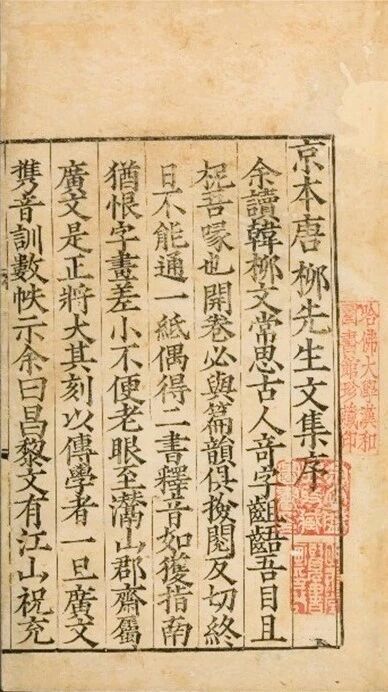 京本唐柳先生文集序
余讀韓柳文常思古人奇字齟齬吾目且
柅吾喙也開卷必與篇韻俱撿閱反切終
日不能通一紙偶得二書釋音如獲指南
猶恨字畫差小不便老眼至灊山郡齋屬
廣文是正將大其刻以傳學者一旦廣文
携音訓數帙示余曰昌黎文有江山祝充
哈佛大學漢和
圖書館珍藏印